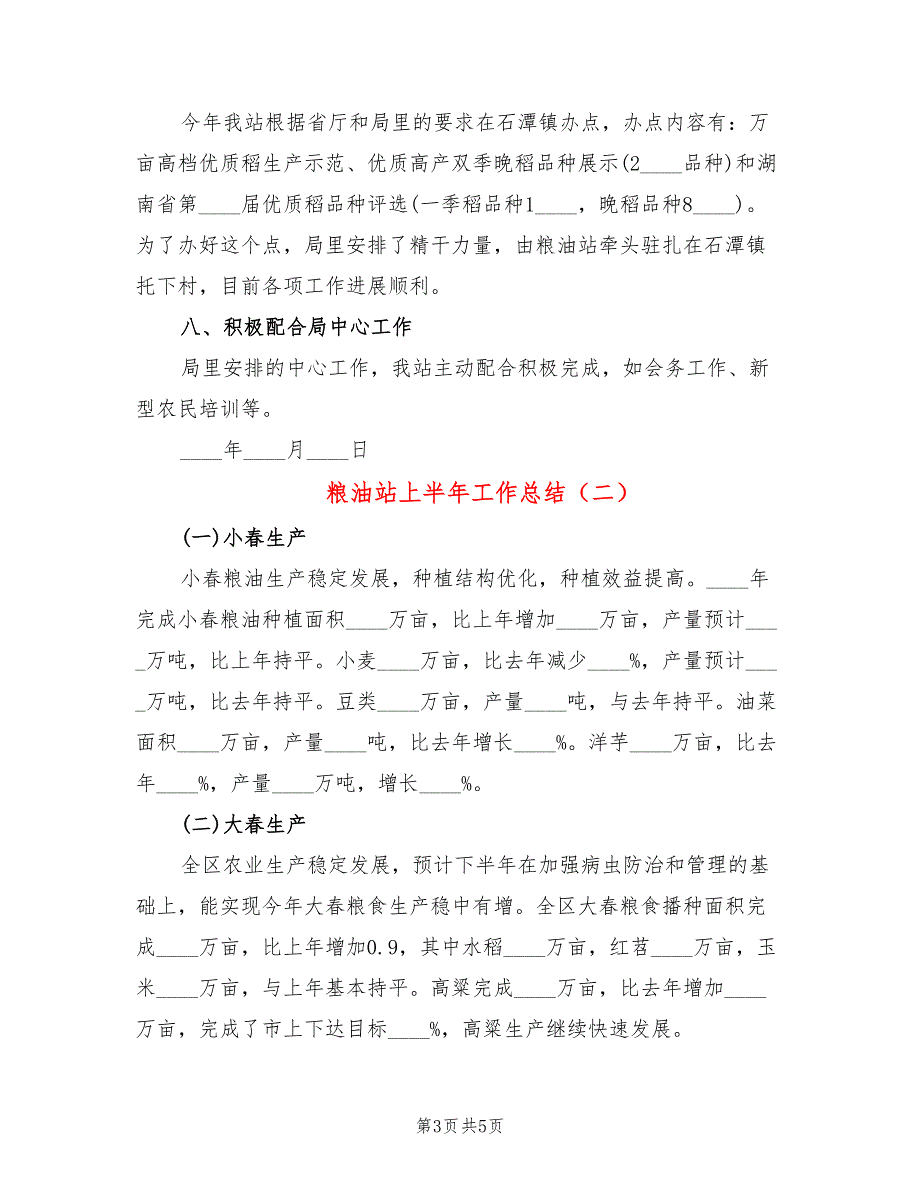 今年我站根据省厅和局里的要求在石潭镇办点，办点内容有：万
亩高档优质稻生产示范、优质高产双季晚稻品种展示(2____品种)和湖
南省第____届优质稻品种评选(一季稻品种1____，晚稻品种8____)。
为了办好这个点，局里安排了精干力量，由粮油站牵头驻扎在石潭镇
托下村，目前各项工作进展顺利。
八、积极配合局中心工作
局里安排的中心工作，我站主动配合积极完成，如会务工作、新
型农民培训等。
____年____月____日
粮油站上半年工作总结（二）
(一)小春生产
小春粮油生产稳定发展，种植结构优化，种植效益提高。____年
完成小春粮油种植面积____万亩，比上年增加____万亩，产量预计___
_万吨，比上年持平。小麦____万亩，比去年减少____%，产量预计___
_万吨，比去年持平。豆类____万亩，产量____吨，与去年持平。油菜
面积____万亩，产量____吨，比去年增长____%。洋芋____万亩，比去
年____%，产量____万吨，增长____%。
(二)大春生产
全区农业生产稳定发展，预计下半年在加强病虫防治和管理的基
础上，能实现今年大春粮食生产稳中有增。全区大春粮食播种面积完
成____万亩，比上年增加0.9，其中水稻____万亩，红苕____万亩，玉
米____万亩，与上年基本持平。高粱完成____万亩，比去年增加____
万亩，完成了市上下达目标____%，高粱生产继续快速发展。
第3页共5页